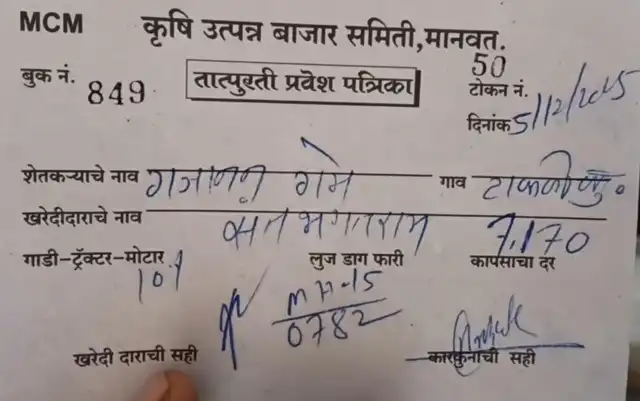 MCM कृषि उत्पन्न बाजार समिती,मानवत.
बुक नं. 849 तात्पुरती प्रवेश पत्रिका 50 टोकन नं.
दिनांक 5/12/2025
शेतकऱ्याचे नाव गजानन गमे गाव
खरेदीदाराचे नाव 7,170
गाडी-ट्रॅक्टर-मोटार लुज डाग फारी कापसाचा दर
101 MH-15
0782
खरेदी दाराची सही कारकुनाची सही